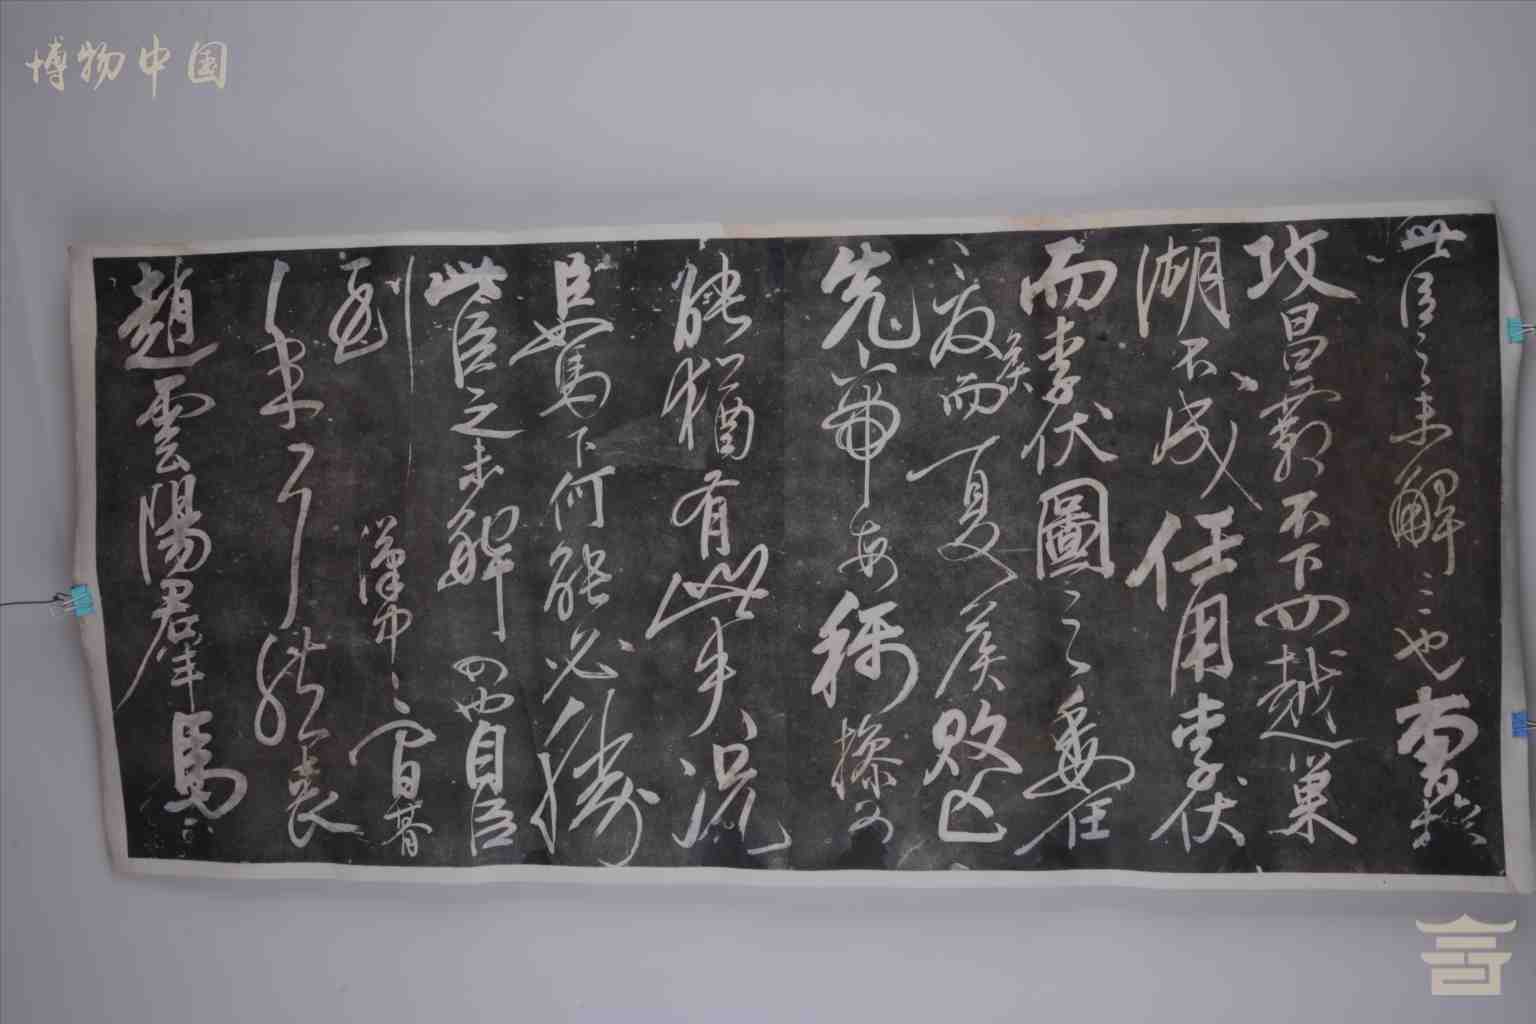 博物中国
此臣之未解三也曹操
攻昌霸不下四越巢
湖不成任用李伏
而李伏圖之委任
夏侯而夏侯敗亡
先帝每稱操為
能猶有此失況
臣駑下何能必勝
此臣之未解四也自臣
到漢中中間朞
年耳然喪
趙雲陽群馬